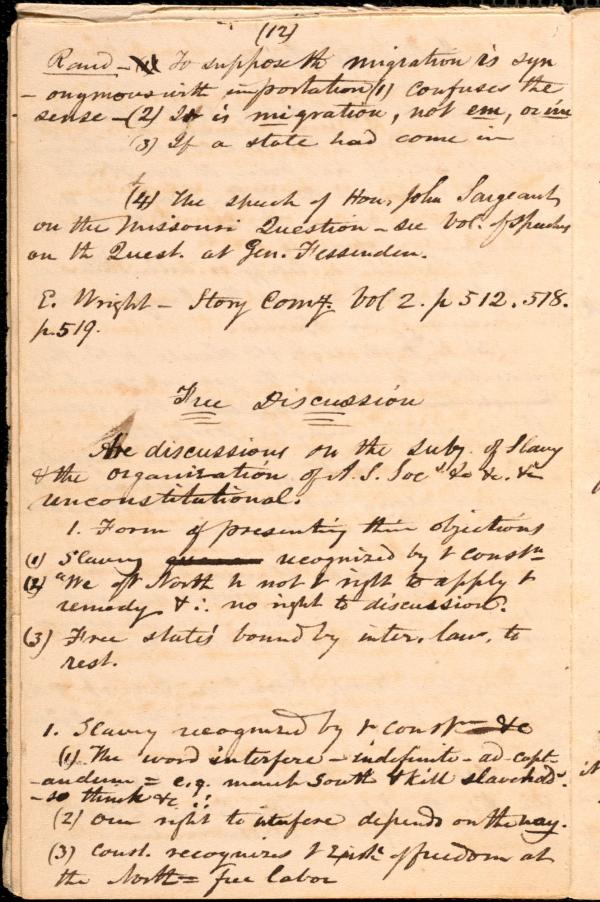 (12)
Rand - To suppose th migration is syn
- onymous with importation (1) confuses the
sense - (2) It is migration, not em, or im
(3) If a state had come in
(4) The speech of Hon. John Sargeant,
on the Missouri Question - see Vol. of Speeches
on th Quest. at Gen. Fessenden.
E. Wright - Story Comy. Vol 2. p 512. 518.
p. 519.
Free Discussion
Are discussions on the subj. of Slavy
& the organization of A. S. Socs &c &c. &c
unconstitutional.
1. Form of presenting their objections
(1) Slavery recognized by t constn
(2) "We of t North h not t right to apply t
remedy & ∴ no right to discussion.
(3) Free states bound by inter. law. to
rest.
1. Slavery recognized by t constn &c
(1) The word interfere - indefinite - ad capt-
-andum = e.g. march South & kill slavehds.
- so think &c !!
(2) our right to interfere depends on the way.
(3) Const. recognizes t of freedom at
the North = free labor